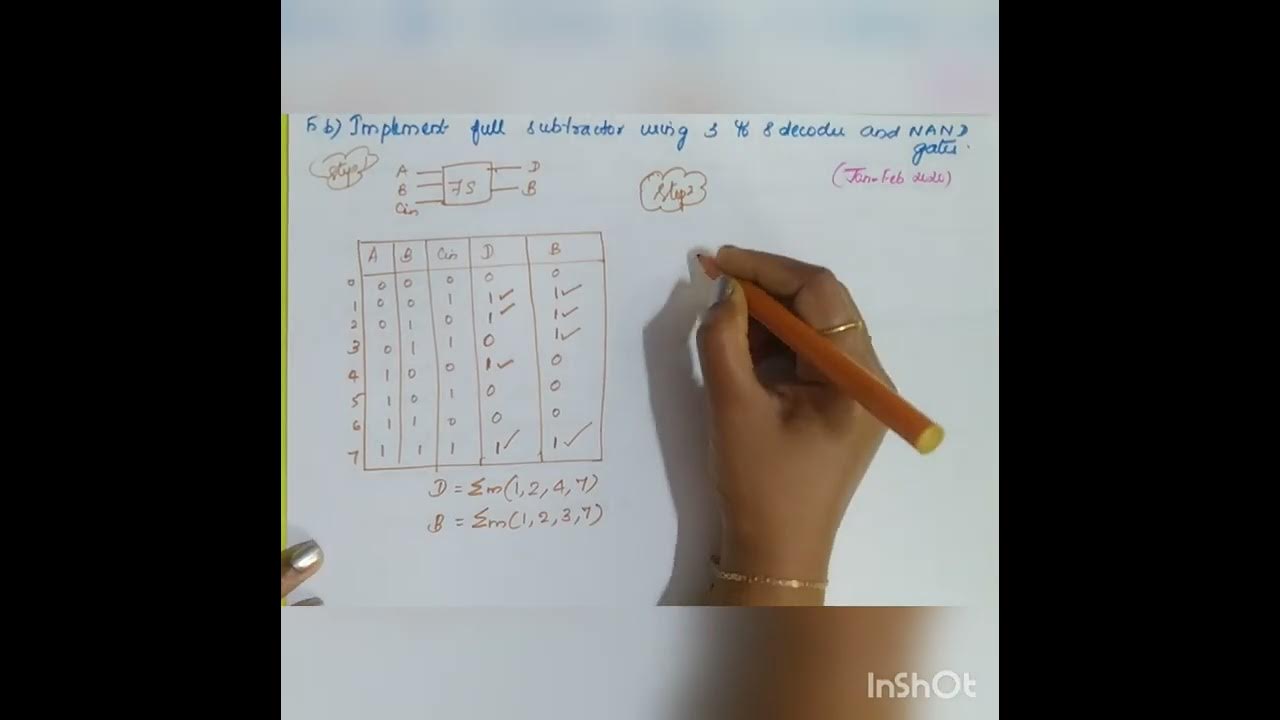 5 b) Implement full subtractor using 3 to 8 decoder and NAND
gates.
(Jan-Feb 2020)
Step 1
A
B
Cin
FS
D
B
Step 2
A B Cin D B
0 0 0 0 0 0
1 0 0 1 1✓ 1✓
2 0 1 0 1✓ 1✓
3 0 1 1 0 1✓
4 1 0 0 1✓ 0
5 1 0 1 0 0
6 1 1 0 0 0
7 1 1 1 1✓ 1✓
D = Σm(1,2,4,7)
B = Σm(1,2,3,7)
InShOt